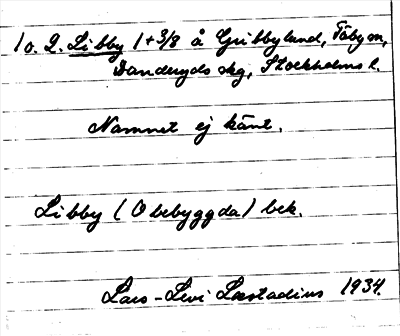 1 o. 2. Libby 1+3/8 å Gribbyland, Täby sn,
Danderyds skg, Stockholms l.
Namnet ej känt.
Libby (Obebyggda) bek.
Lars-Levi Læstadius 1934.